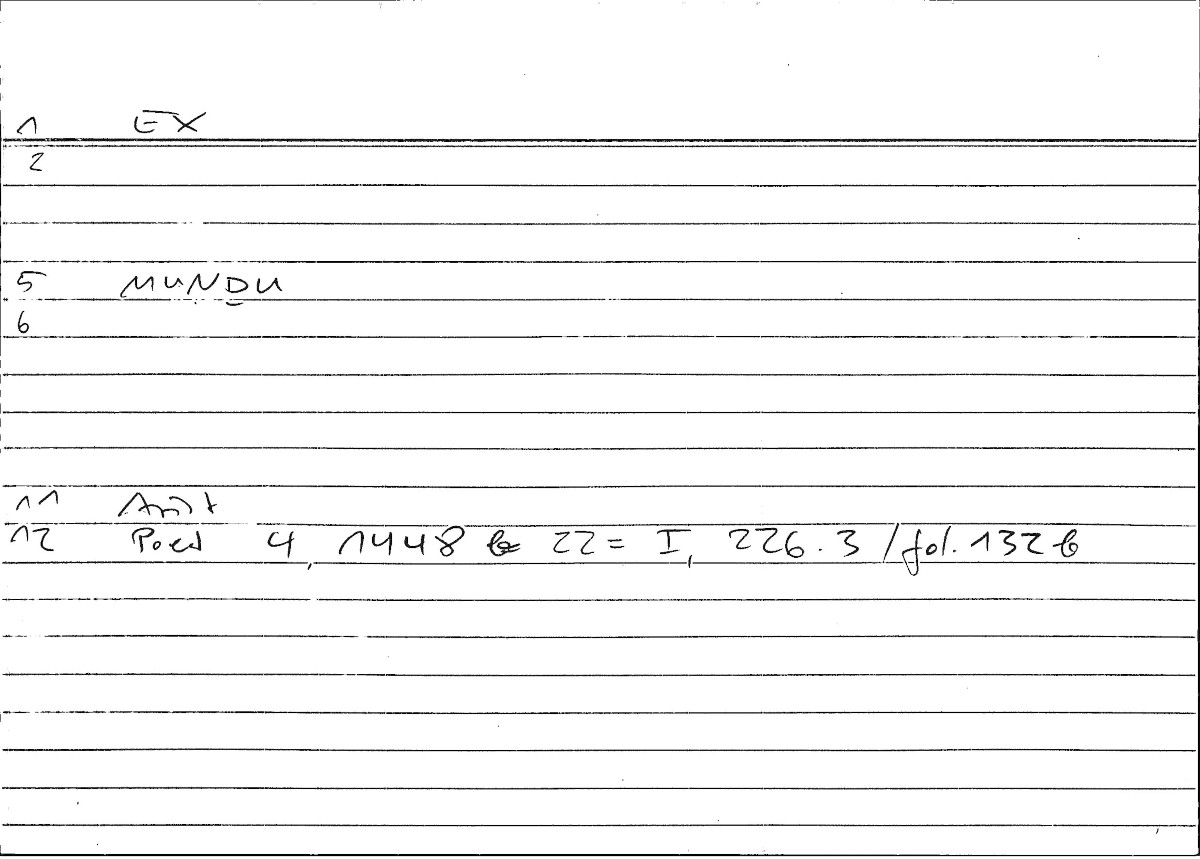 1 EX
2
5 MUNḎU
6
11 Arist
12 Poet 4, 1448 b 22 = I, 226.3 / fol. 132 b